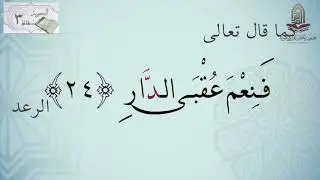 كما قال تعالى
فَنِعْمَ عُقْبَى الدَّارِ ﴿٢٤﴾ الرعد
التجويد
٣